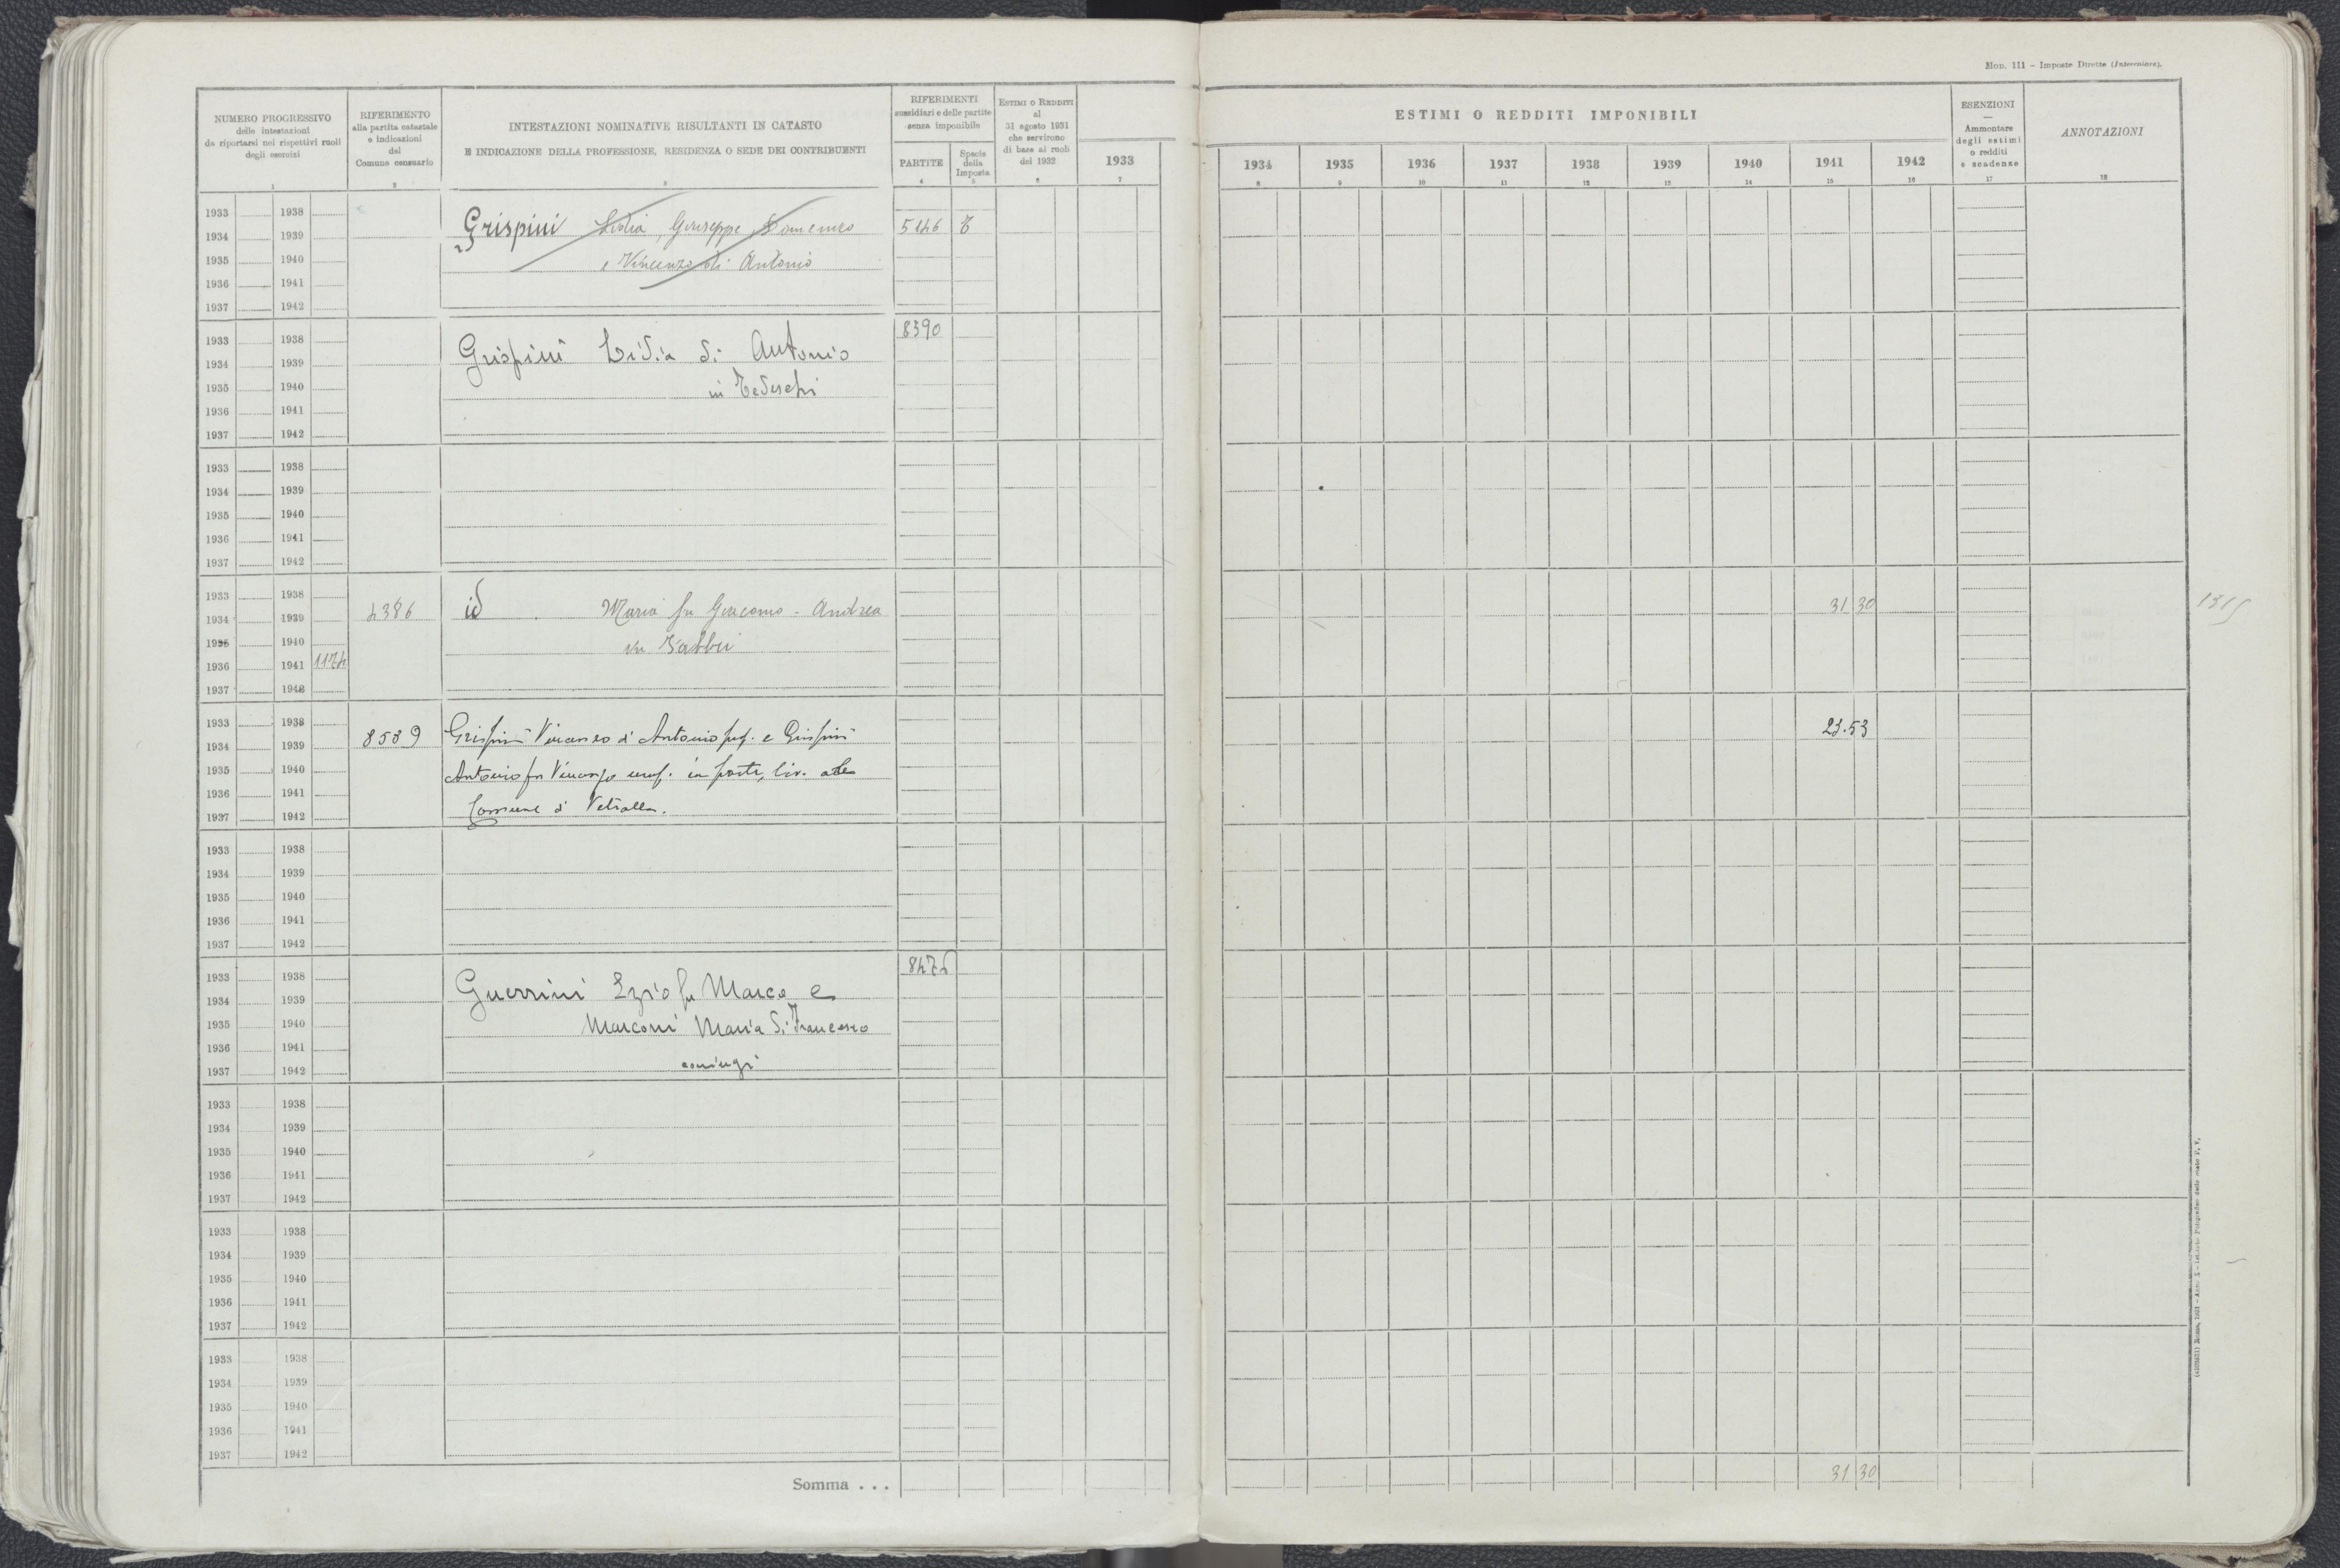 Mod. 111 - Imposte Dirette (Intercalare).
NUMERO PROGRESSIVO
delle intestazioni
da riportarsi nei rispettivi ruoli
degli esercizi
1
RIFERIMENTO
alla partita catastale
e indicazioni
del
Comune censuario
2
INTESTAZIONI NOMINATIVE RISULTANTI IN CATASTO
E INDICAZIONE DELLA PROFESSIONE, RESIDENZA O SEDE DEI CONTRIBUENTI
3
RIFERIMENTI
sussidiari e delle partite
senza imponibile
PARTITE
4
Specie
della
Imposta
5
ESTIMI O REDDITI
al
31 agosto 1931
che servirono
di base ai ruoli
del 1932
6
1933
7
ESTIMI O REDDITI IMPONIBILI
1934 1935 1936 1937 1938 1939 1940 1941 1942
8 9 10 11 12 13 14 15 16
ESENZIONI
Ammontare
degli estimi
o redditi
e scadenze
17
ANNOTAZIONI
18
1933 1938
1934 1939 Grispini Lidia, Giuseppe, Domenico 5146 T
1935 1940 e Vincenzo di Antonio
1936 1941
1937 1942
8390
1933 1938
1934 1939 Grispini Lidia di Antonio
1935 1940 in Tedeschi
1936 1941
1937 1942
1933 1938
1934 1939
1935 1940
1936 1941
1937 1942
1933 1938
1934 1939 4386 id Maria fu Giacomo - Andrea 31 30
1935 1940
1936 1941 1174
1937 1942
1933 1938
1934 1939 8589 Grispini Vincenzo di Antonio prop. e Grispini 21.53
1935 1940 Antonio fu Vincenzo usuf. in parte, liv. al
1936 1941
1937 1942 Comune di Vetralla.
1933 1938
1934 1939
1935 1940
1936 1941
1937 1942
1933 1938
1934 1939 Guerrini Ezio fu Marco e
1935 1940 Marconi Maria di Francesco
1936 1941
1937 1942 coniugi
1933 1938
1934 1939
1935 1940
1936 1941
1937 1942
1933 1938
1934 1939
1935 1940
1936 1941
1937 1942
1933 1938
1934 1939
1935 1940
1936 1941
1937 1942
Somma . . . 31 30